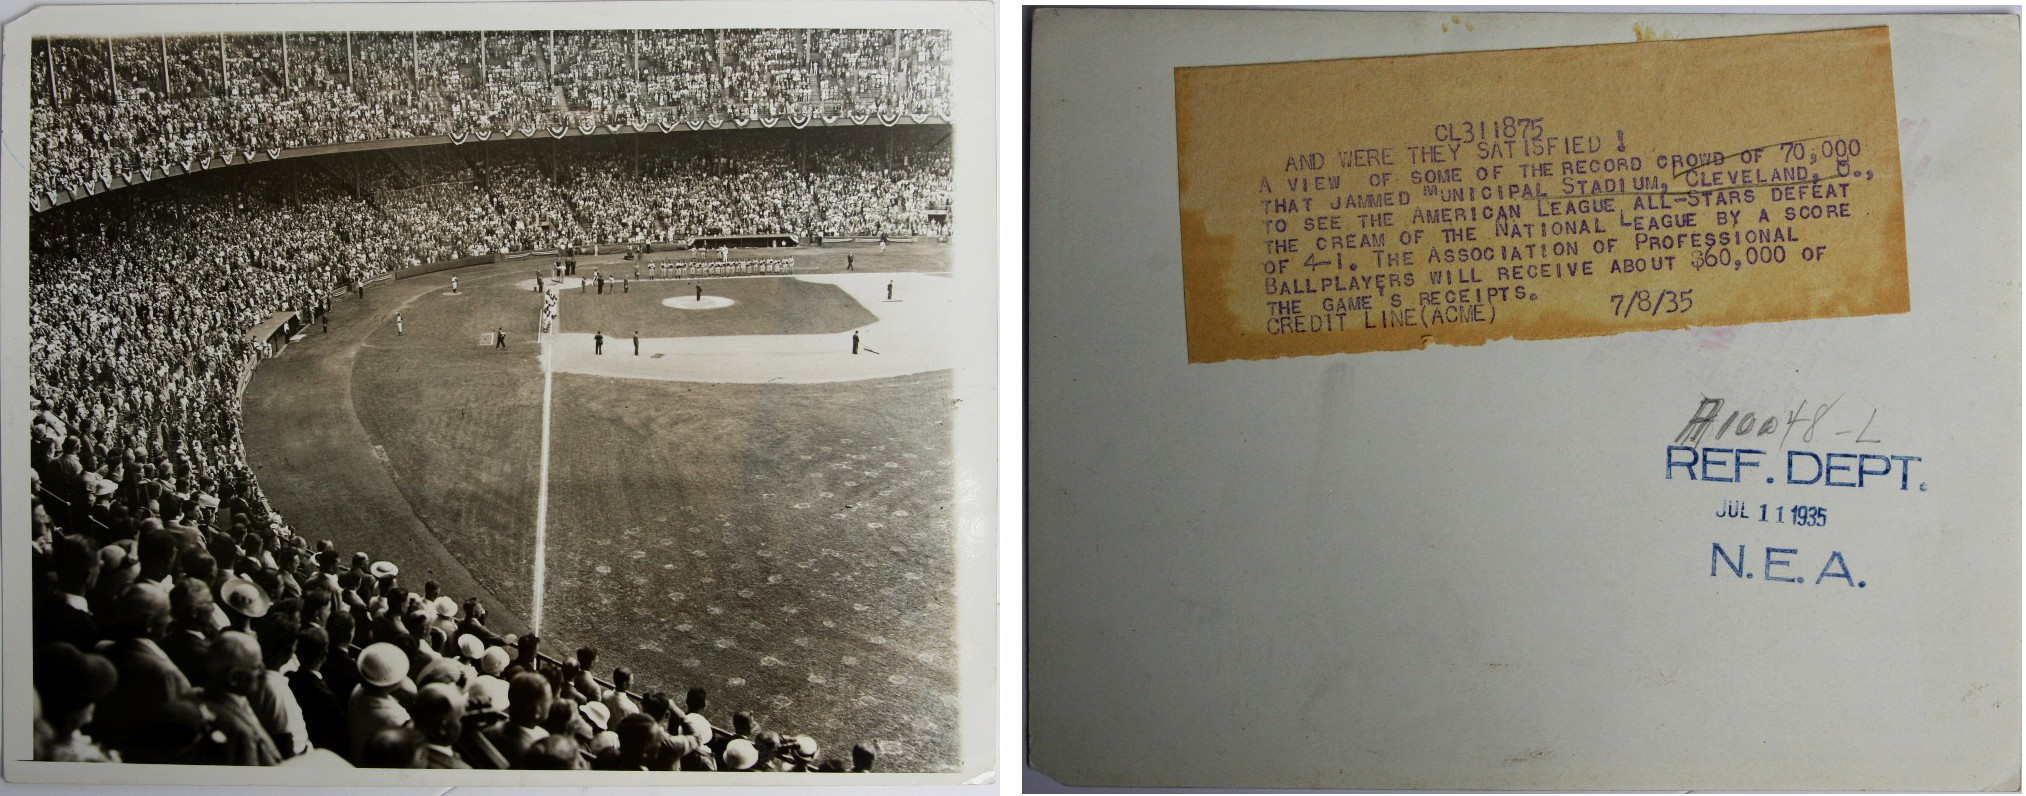 CL311875
AND WERE THEY SATISFIED !
A VIEW OF SOME OF THE RECORD CROWD OF 70,000
THAT JAMMED MUNICIPAL STADIUM, CLEVELAND, O.,
TO SEE THE AMERICAN LEAGUE ALL-STARS DEFEAT
THE CREAM OF THE NATIONAL LEAGUE BY A SCORE
OF 4-1. THE ASSOCIATION OF PROFESSIONAL
BALLPLAYERS WILL RECEIVE ABOUT $60,000 OF
THE GAME'S RECEIPTS.
CREDIT LINE(ACME) 7/8/35
A10048-L
REF. DEPT.
JUL 11 1935
N.E.A.